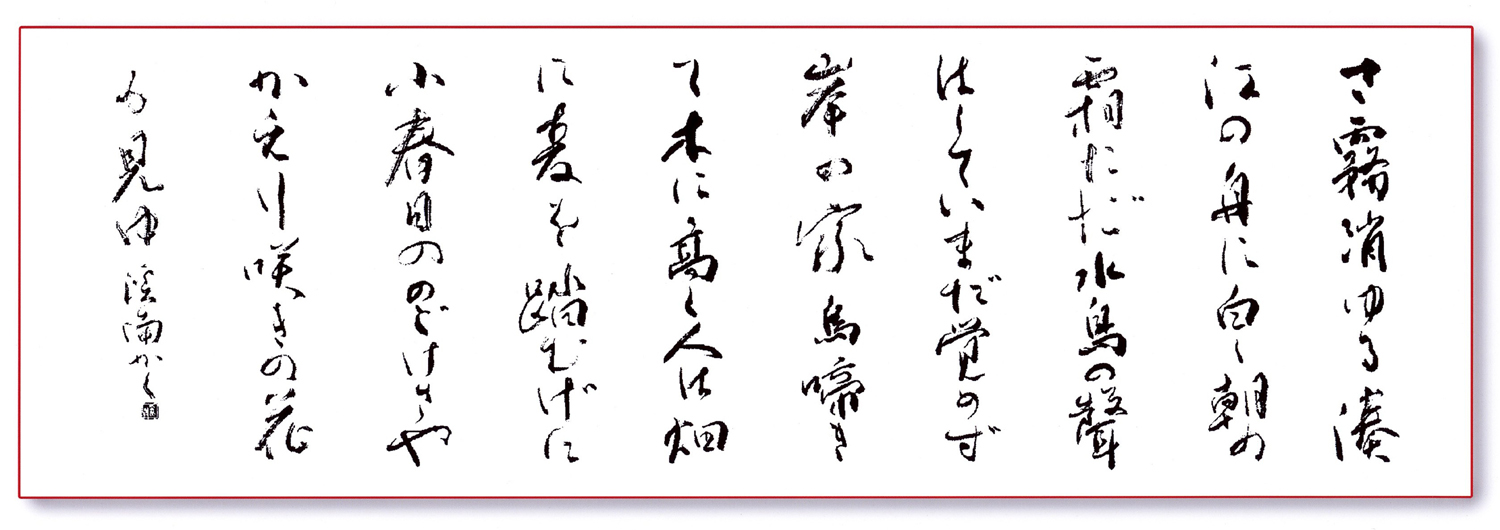 さ霧消ゆる湊
江の舟に白し朝の
霜ただ水鳥の聲
はしていまだ覚めず
岸の家烏啼き
て木に高く人は畑
に麦を踏むげに
小春日ののどけさや
かえり咲きの花
も見ゆ 溪南かく